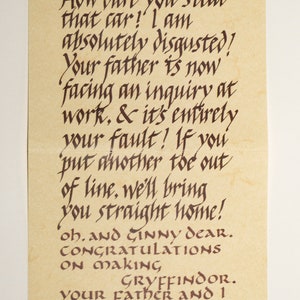 How dare you steal
that car! I am
absolutely disgusted!
Your father is now
facing an inquiry at
work, & it's entirely
your fault! If you
put another toe out
of line, we'll bring
you straight home!
oh, and Ginny dear.
Congratulations
on making
Gryffindor.
Your father and I